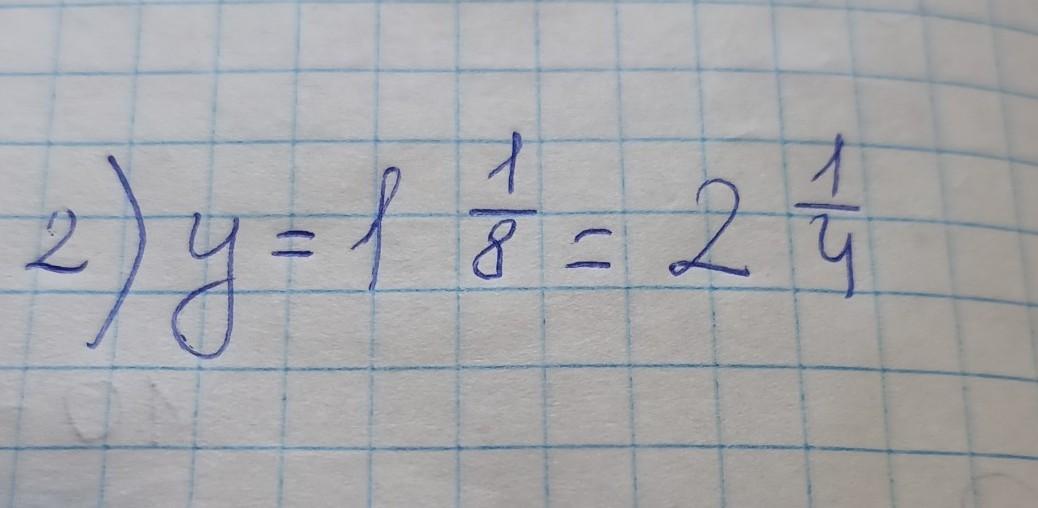 2) y = 1 1/8 = 2 1/4